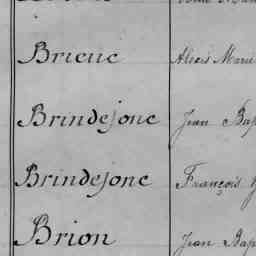 Brieuc Alexis Marie
Brindejonc Jean Bap
Brindejonc François
Brion Jean Bap